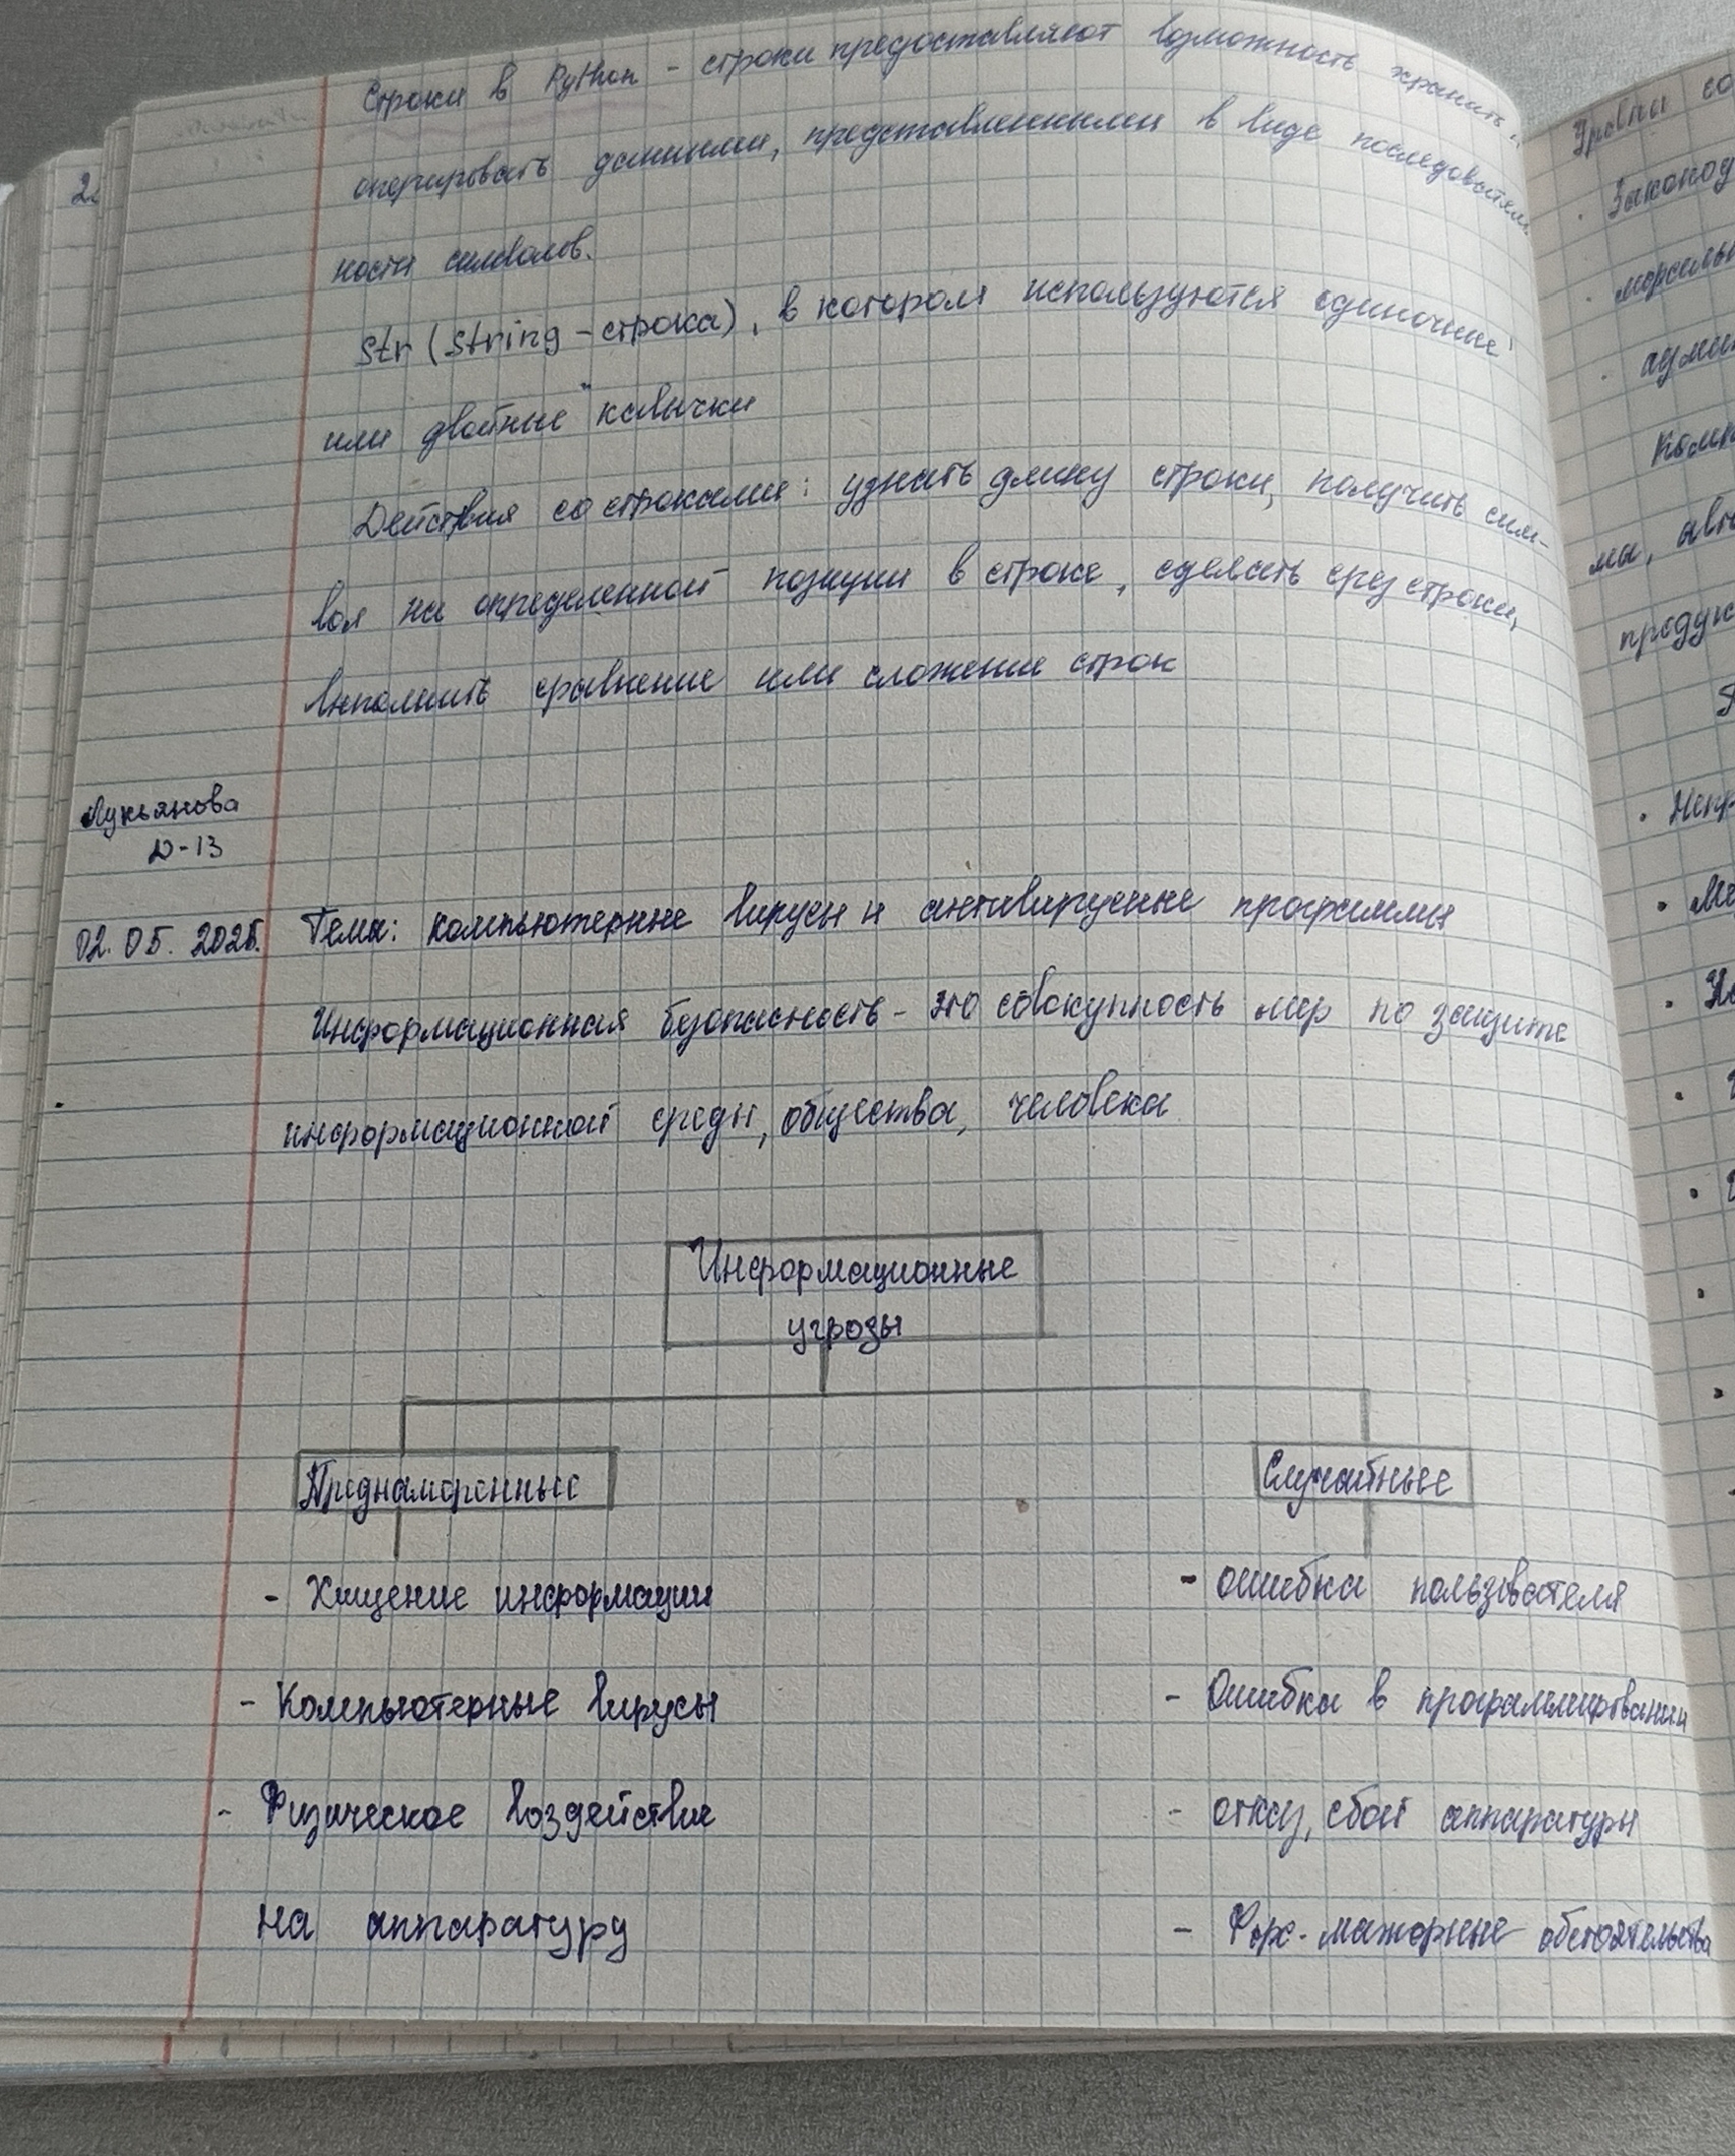 Строки в Python - строки предоставляют возможность хранить и
оперировать данными, представленными в виде последователь
ности символов.
str (string - строка), в котором используются одиночные '
или двойные " кавычки
Действия со строками: узнать длину строки, получить сим-
вол на определенной позиции в строке, сделать срез строки,
Выполнить сравнение или сложение строк
Лукьянова
D-13
02.05.2025. Тема: Компьютерные вирусы и антивирусные программы
Информационная безопасность - это совокупность мер по защите
информационной среды, общества, человека
Информационные
угрозы
Преднамеренные
Случайные
- Хищение информации
- ошибка пользователя
- Компьютерные вирусы
- Ошибка в программировании
- Физическое воздействие
- отказ, сбой аппаратуры
на аппаратуру
- Форс-мажорные обстоятельства
Уровны со
· Законод
· мораль
· адми
Комп
мы, авт
продук
· Непр
· Ме